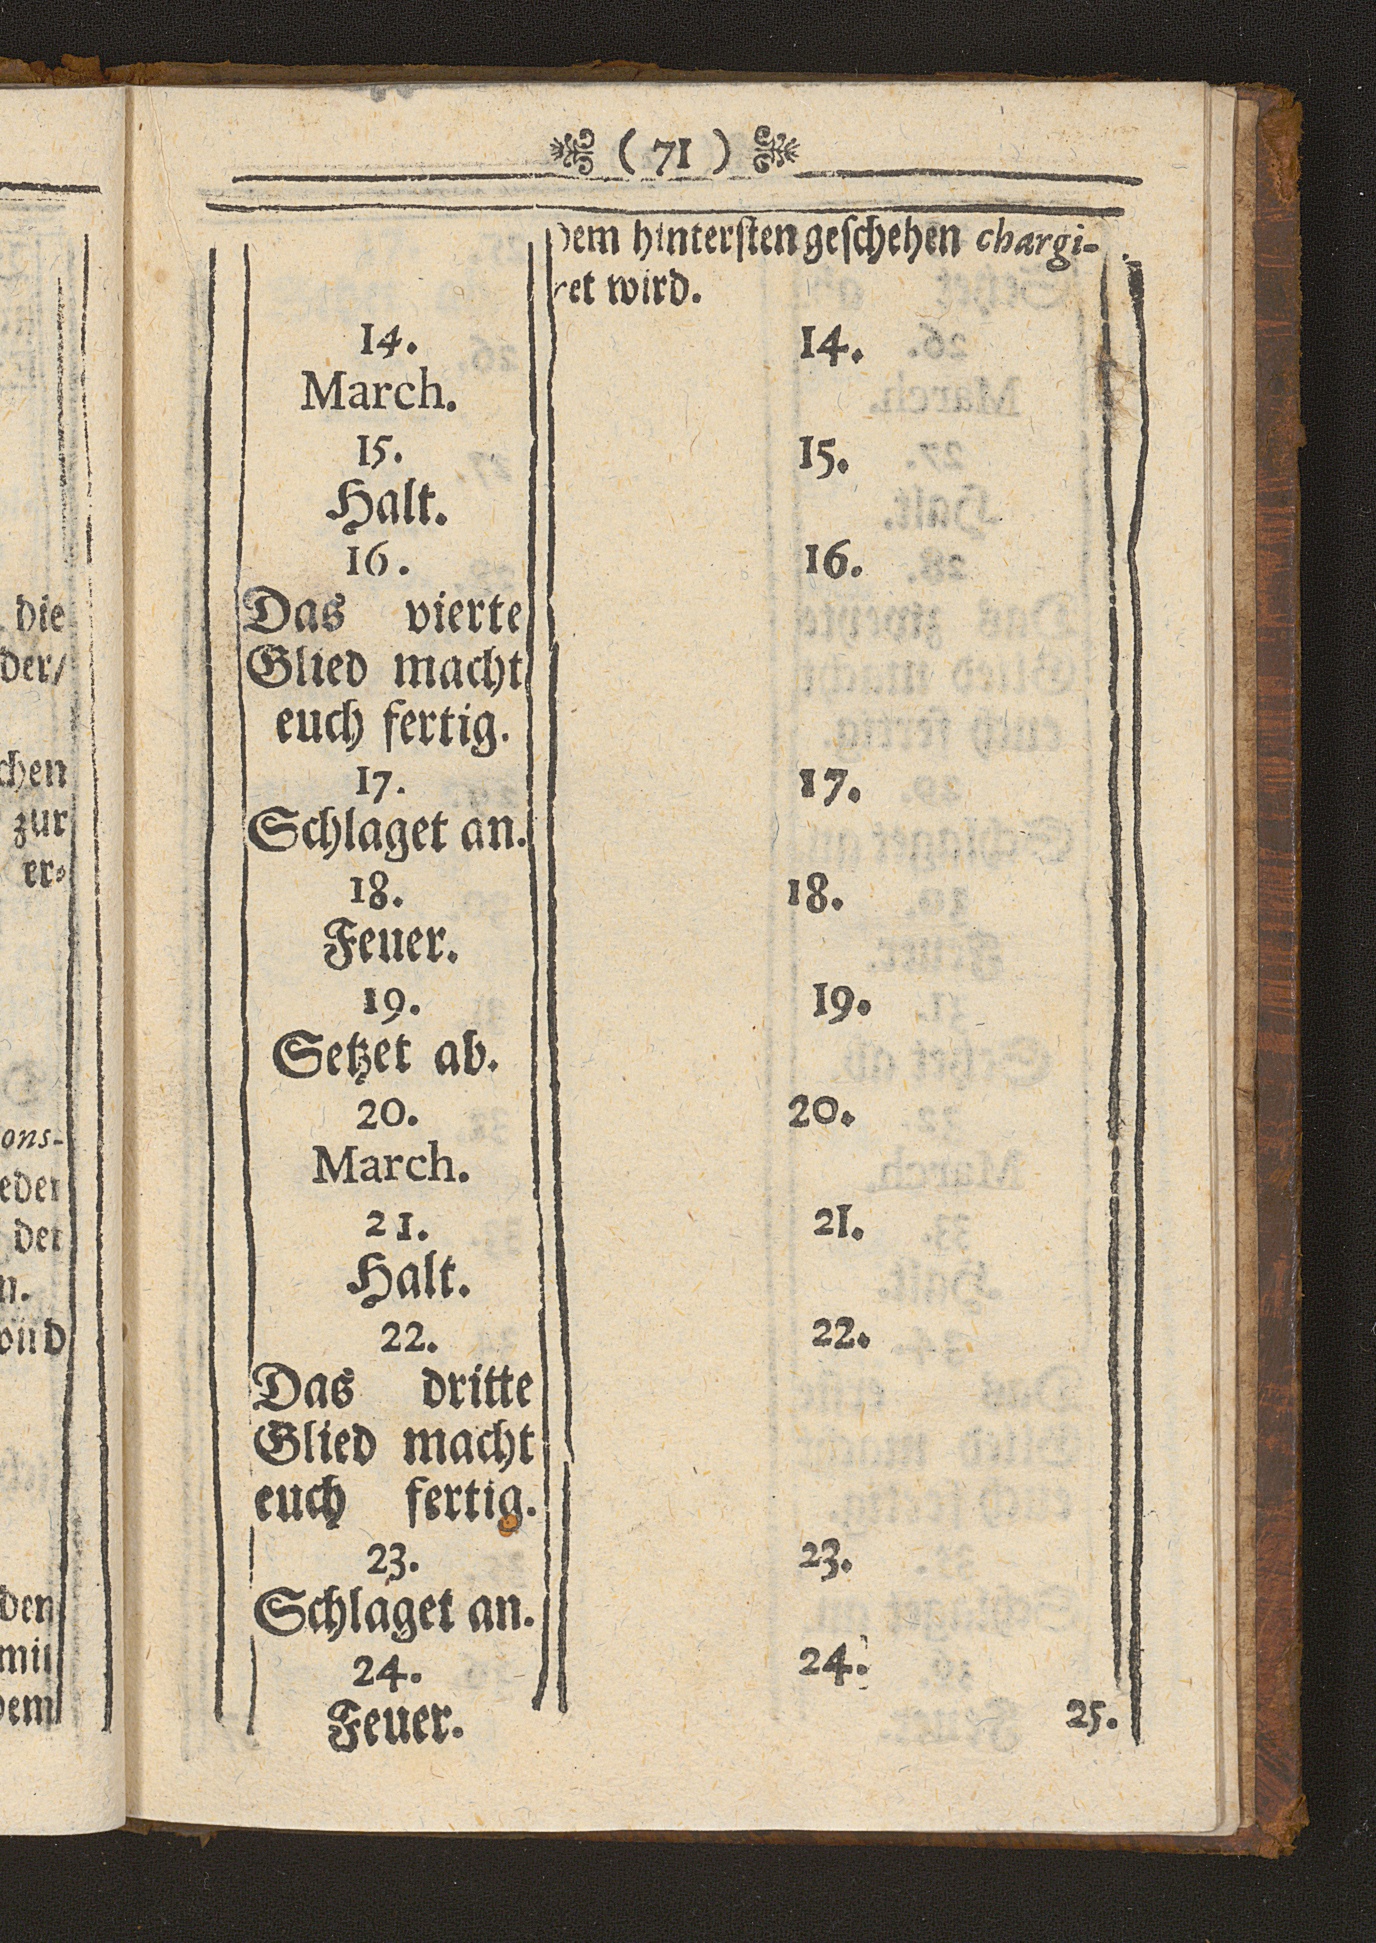 ( 71 )
dem hintersten geschehen chargi-
ret wird.
14.
March.
15.
Halt.
16.
Das vierte
Glied macht
euch fertig.
17.
Schlaget an.
18.
Feuer.
19.
Setzet ab.
20.
March.
21.
Halt.
22.
Das dritte
Glied macht
euch fertig.
23.
Schlaget an.
24.
Feuer.
14.
15.
16.
17.
18.
19.
20.
21.
22.
23.
24.
25.